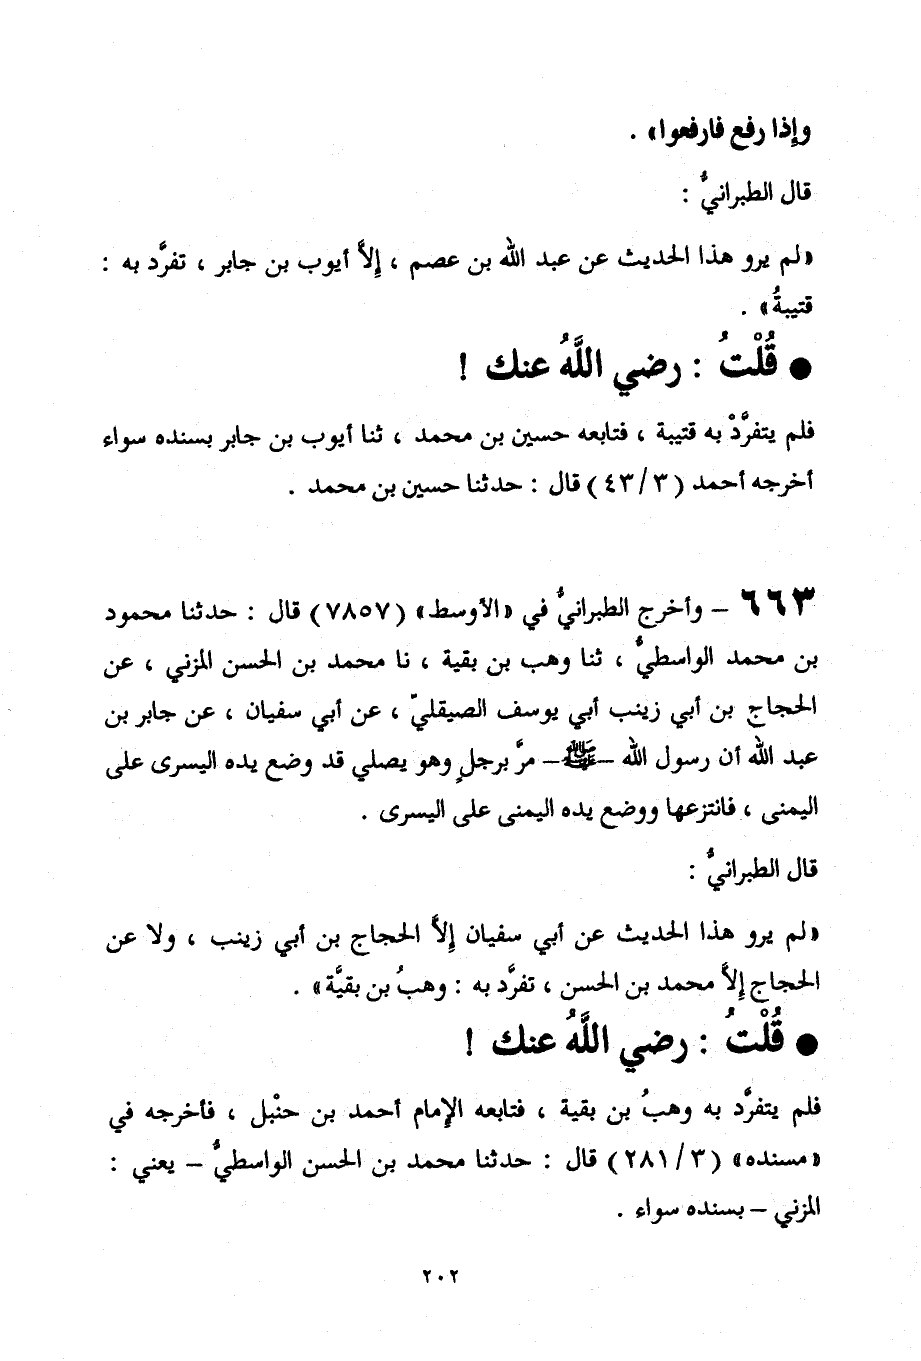 وإذا رفع فارفعوا» .
قال الطبرانيُّ :
«لم يرو هذا الحديث عن عبد الله بن عصم ، إلاَّ أيوب بن جابر ، تفرَّد به :
قتيبةُ» .
● قُلْتُ : رضي اللَّهُ عنك !
فلم يتفرَّدْ به قتيبة ، فتابعه حسين بن محمد ، ثنا أيوب بن جابر بسنده سواء
أخرجه أحمد (٤٣/٣) قال : حدثنا حسين بن محمد .
٦٦٣ – وأخرج الطبرانيُّ في «الأوسط» (٧٨٥٧) قال : حدثنا محمود
بن محمد الواسطيُّ ، ثنا وهب بن بقية ، نا محمد بن الحسن المزني ، عن
الحجاج بن أبي زينب أبي يوسف الصيقليّ ، عن أبي سفيان ، عن جابر بن
عبد الله أن رسول الله –ﷺ– مرَّ برجلٍ وهو يصلي قد وضع يده اليسرى على
اليمنى ، فانتزعها ووضع يده اليمنى على اليسرى .
قال الطبرانيُّ :
«لم يرو هذا الحديث عن أبي سفيان إلاَّ الحجاج بن أبي زينب ، ولا عن
الحجاج إلاَّ محمد بن الحسن ، تفرَّد به : وهبُ بن بقيَّة» .
● قُلْتُ : رضي اللَّهُ عنك !
فلم يتفرَّد به وهبُ بن بقية ، فتابعه الإمام أحمد بن حنْبل ، فأخرجه في
«مسنده» (٢٨١/٣) قال : حدثنا محمد بن الحسن الواسطيُّ – يعني :
المزني – بسنده سواء .
٢٠٢